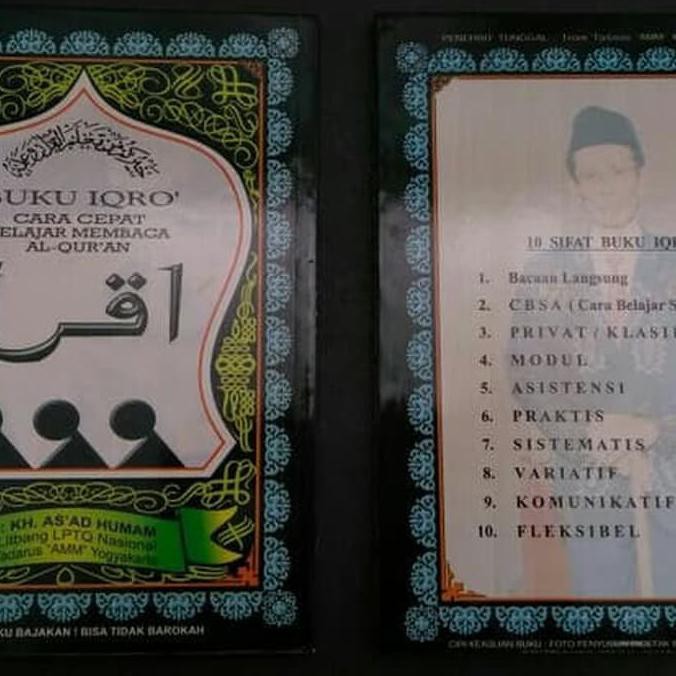 BUKU IQRO'
CARA CEPAT
BELAJAR MEMBACA
AL-QUR'AN
اقرأ
: KH. AS'AD HUMAM
Litbang LPTQ Nasional
Tadarus "AMM" Yogyakarta
BAJAKAN ! BISA TIDAK BAROKAH
PENERBIT TUNGGAL : Team Tadarus "AMM"
10 SIFAT BUKU
1. Bacaan Langsung
2. CBSA ( Cara Belajar
3. PRIVAT /
4. MODUL
5. ASISTENSI
6. PRAKTIS
7. SISTEMATIS
8. VARIATIF
9. KOMUNIKATIF
10. FLEKSIBEL
CIRI KEASLIAN BUKU : FOTO